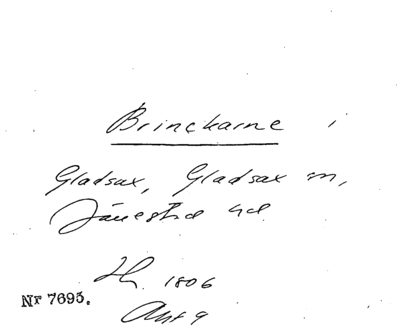 Brinckarne i
Gladsax, Gladsax sn,
Järrestad hd.
1806
Nr 7695.